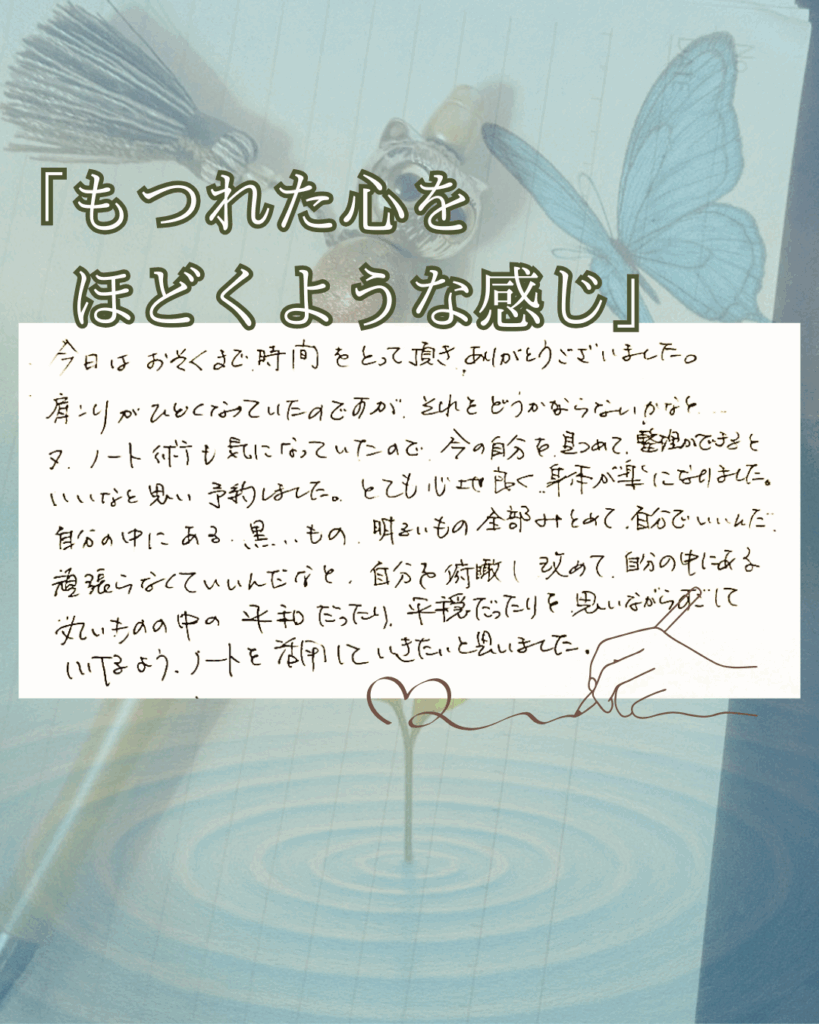 「もつれた心を
ほどくような感じ」
今日は おそくまで 時間 をとって頂き、ありがとうございました。
肩こりが ひどくなっていたのですが、それを どうかならないかなと…
又、ノート術も 気になっていたので、今の自分を 見つめて、整理ができると
いいなと思い 予約しました。とても 心地良く 身体が楽になりました。
自分の中に ある 黒いもの、明るいもの 全部 みとめて、自分で いいんだ、
頑張らなくていいんだなと、自分を 俯瞰し 改めて、自分の中にある
丸いものの中の 平和 だったり、平穏だったりを 思いながら過ごして
いけるよう、ノートを 活用して いきたいと思いました。